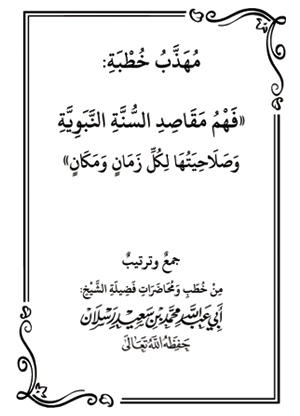 مُهَذَّبُ خُطْبَةِ:
«فَهْمُ مَقَاصِدِ السُّنَّةِ النَّبَوِيَّةِ
وَصَلَاحِيَتُهَا لِكُلِّ زَمَانٍ وَمَكَانٍ»
جمعٌ وترتيبٌ
مِنْ خُطَبِ وَمُحَاضَرَاتِ فَضِيلَةِ الشَّيْخِ:
أَبِي عَبْدِ اللَّهِ مُحَمَّدِ بْنِ سَعِيدٍ رَسْلَان
حَفِظَهُ اللَّهُ تَعَالَى